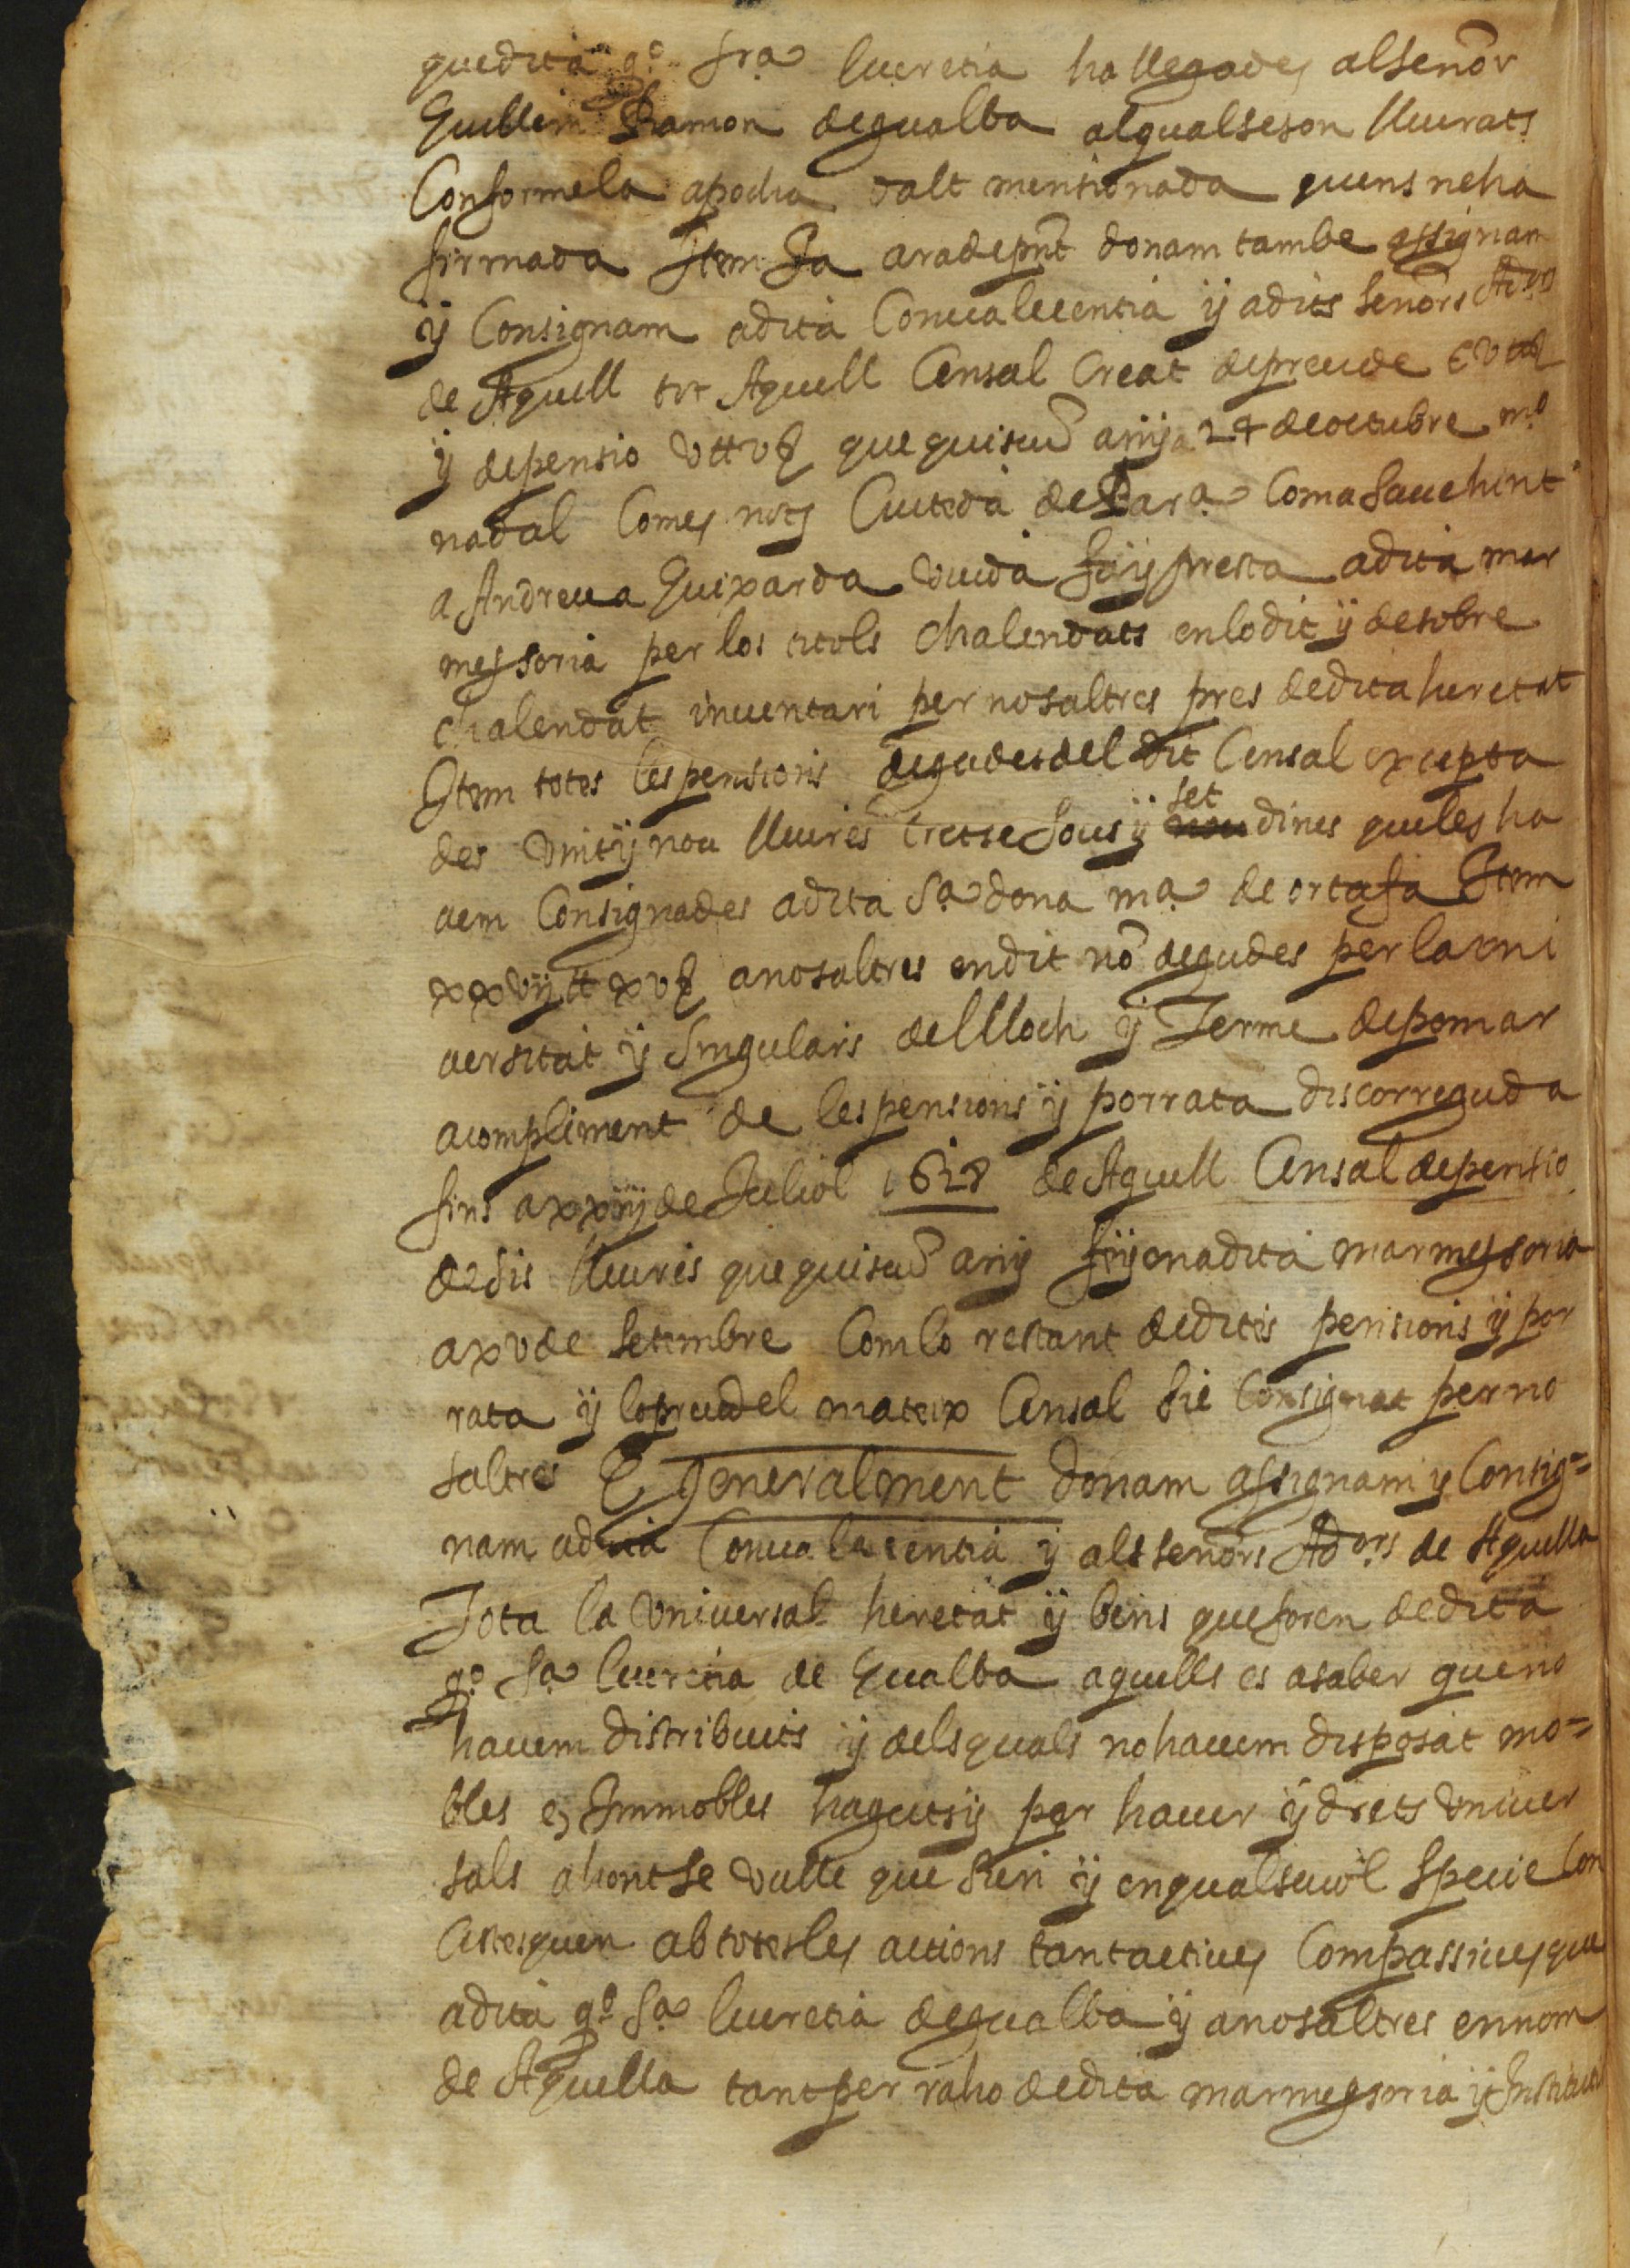 que dita q.º sra lucretia ha llegades al señor
Guillem Ramon de gualba al qual se son lliurats
Conforme la apocha dalt mentionada quens ne ha
firmada Item Ja ara de pnt donam tambe assignam
ÿ Consignam a dita Conualecentia ÿ a dits señors Ad.ors
de Aquell tot Aquell Censal Creat de preu de
ÿ de pensio que quiscũ anÿ a 24 de octubre m.º
nadal Comes not.ª Ciutedà de Bar.ª Com a Sauehint
a Andreua Guixarda viuda fa ÿ presta a dita mar
messoria per los titols Chalendats en lo dit ÿ desobre
chalendat inuentari per nosaltres pres de dita heretat
Item totes les pensions degudes del dit Censal excepta
des vint ÿ nou lliures tretse sous ÿ set dines que les ha
uem Consignades a dita Sª dona mª de ortafa Item
xxvij ℔ xvß a nosaltres en dit nõ degudes per la vni
uersitat ÿ Singulars del lloch ÿ Terme de pomar
a compliment de les pensions ÿ porrata discorreguda
fins a xxiij de Juliol 1628 de Aquell Censal de pensio
de sis lliures que quiscũ anÿ fÿ en a dita marmessoria
a xv de Setembre Com lo restant de dites pensions ÿ por
rata ÿ lo preu del mateix Censal sie Consignat per no
saltres E generalment donam assignam ÿ Consig=
nam a dita Conualecentia ÿ als señors Ad.ors de Aquella
Tota la vniuersal heretat ÿ bens que foren de dita
q.º Sª lucretia de Gualba aquells es a saber que no
hauem distribuits ÿ dels quals no hauem disposat mo=
bles e Immobles haguts ÿ per hauer ÿ drets vniuer
sals ahont se vulle que sien ÿ en qualseuol Specie Con
sistesquen ab totes les actions tant actiues Com passiues que
a dita q.º Sª lucretia de gualba ÿ a nosaltres en nom
de Aquella tant per raho de dita marmessoria ÿ